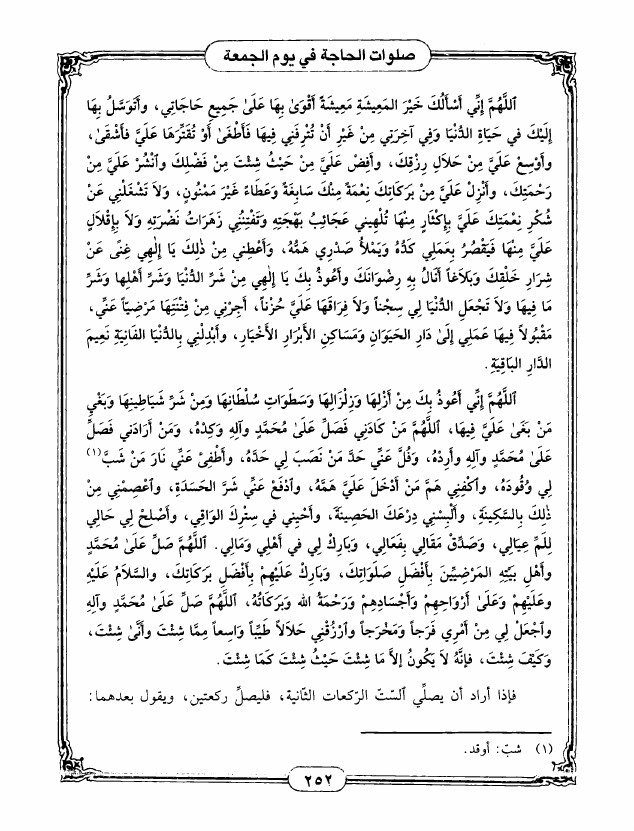 صلوات الحاجة في يوم الجمعة
اَللَّهُمَّ إِنِّي أَسْأَلُكَ خَيْرَ المَعِيشَةِ مَعِيشَةً أَقْوَىٰ بِهَا عَلَىٰ جَمِيعِ حَاجَاتِي، وأَتَوَسَّلُ بِهَا
إِلَيْكَ في حَيَاةِ الدُّنْيَا وَفِي آخِرَتِي مِنْ غَيْرِ أَنْ تُتْرِفَنِي فِيهَا فَأَطْغَىٰ أَوْ تُقَتِّرَهَا عَلَيَّ فأَشْقَىٰ،
وأَوْسِعْ عَلَيَّ مِنْ حَلَالِ رِزْقِكَ، وأَفِضْ عَلَيَّ مِنْ حَيْثُ شِئْتَ مِنْ فَضْلِكَ وٱنْشُرْ عَلَيَّ مِنْ
رَحْمَتِكَ، وأَنْزِلْ عَلَيَّ مِنْ بَرَكَاتِكَ نِعْمَةً مِنْكَ سَابِغَةً وعَطَاءً غَيْرَ مَمْنُونٍ، وَلاَ تَشْغَلْنِي عَنْ
شُكْرِ نِعْمَتِكَ عَلَيَّ بِإِكْثَارٍ مِنْهَا تُلْهِينِي عَجَائِبُ بَهْجَتِهِ وَتَفْتِنُنِي زَهَرَاتُ نَضْرَتِهِ وَلاَ بِإِقْلاَلٍ
عَلَيَّ مِنْهَا فَيَقْصُرُ بِعَمَلِي كَدُّهُ وَيَمْلأُ صَدْرِي هَمُّهُ، وَأَعْطِنِي مِنْ ذٰلِكَ يَا إِلٰهِي غِنًى عَنْ
شِرَارِ خَلْقِكَ وَبَلاَغاً أَنَالُ بِهِ رِضْوَانَكَ وأَعُوذُ بِكَ يَا إِلٰهِي مِنْ شَرِّ الدُّنْيَا وَشَرِّ أَهْلِهَا وَشَرِّ
مَا فِيهَا وَلاَ تَجْعَلِ الدُّنْيَا لِي سِجْناً وَلاَ فِرَاقَهَا عَلَيَّ حُزْناً، أَجِرْنِي مِنْ فِتْنَتِهَا مَرْضِيّاً عَنِّي،
مَقْبُولاً فِيهَا عَمَلِي إِلَىٰ دَارِ الحَيَوَانِ وَمَسَاكِنِ الأَبْرَارِ الأَخْيَارِ، وأَبْدِلْنِي بِالدُّنْيَا الفَانِيَةِ نَعِيمَ
الدَّارِ البَاقِيَةِ.
اَللَّهُمَّ إِنِّي أَعُوذُ بِكَ مِنْ أَزْلِهَا وَزِلْزَالِهَا وَسَطَوَاتِ سُلْطَانِهَا وَمِنْ شَرِّ شَيَاطِينِهَا وَبَغْيِ
مَنْ بَغَىٰ عَلَيَّ فِيهَا، اَللَّهُمَّ مَنْ كَادَنِي فَصَلِّ عَلَىٰ مُحَمَّدٍ وآلِهِ وَكِدْهُ، وَمَنْ أَرَادَنِي فَصَلِّ
عَلَىٰ مُحَمَّدٍ وآلِهِ وأَرِدْهُ، وَفُلَّ عَنِّي حَدَّ مَنْ نَصَبَ لِي حَدَّهُ، وأَطْفِئْ عَنِّي نَارَ مَنْ شَبَّ(١)
لِي وُقُودَهُ، وٱكْفِنِي هَمَّ مَنْ أَدْخَلَ عَلَيَّ هَمَّهُ، وٱدْفَعْ عَنِّي شَرَّ الحَسَدَةِ، وٱعْصِمْنِي مِنْ
ذٰلِكَ بِالسَّكِينَةِ، وأَلْبِسْنِي دِرْعَكَ الحَصِينَةَ، وٱحْيِنِي في سِتْرِكَ الوَاقِي، وأَصْلِحْ لِي حَالِي
لِلَمِّ عِيَالِي، وَصَدِّقْ مَقَالِي بِفَعَالِي، وَبَارِكْ لِي في أَهْلِي وَمَالِي. اَللَّهُمَّ صَلِّ عَلَىٰ مُحَمَّدٍ
وأَهْلِ بَيْتِهِ المَرْضِيِّينَ بِأَفْضَلِ صَلَوَاتِكَ، وَبَارِكْ عَلَيْهِمْ بِأَفْضَلِ بَرَكَاتِكَ، والسَّلاَمُ عَلَيْهِ
وعَلَيْهِمْ وَعَلَىٰ أَرْوَاحِهِمْ وأَجْسَادِهِمْ وَرَحْمَةُ الله وَبَرَكَاتُهُ، اَللَّهُمَّ صَلِّ عَلَىٰ مُحَمَّدٍ وآلِهِ
وٱجْعَلْ لِي مِنْ أَمْرِي فَرَجاً وَمَخْرَجاً وٱرْزُقْنِي حَلاَلاً طَيِّباً وَاسِعاً مِمَّا شِئْتَ وأَنَّىٰ شِئْتَ،
وَكَيْفَ شِئْتَ، فَإِنَّهُ لاَ يَكُونُ إِلاَّ مَا شِئْتَ حَيْثُ شِئْتَ كَمَا شِئْتَ.
فإذا أراد أن يصلِّي ٱلستّ الرّكعات الثّانية، فليصلِّ ركعتين، ويقول بعدهما:
(١) شبّ: أوقد.
٢٥٢